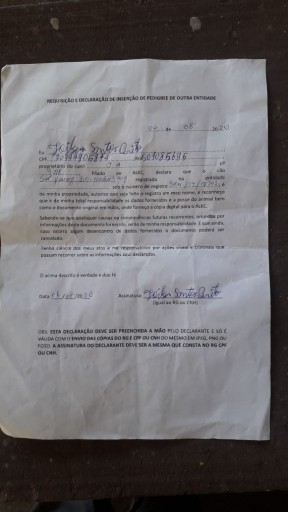 REQUISIÇÃO E DECLARAÇÃO DE INSERÇÃO DE PEDIGREE DE OUTRA ENTIDADE
de 08 de 20
Eu
CPF RG
proprietário do canil
filiado ao ALKC, declaro que o cão
registrado na entidade
sob o número de registro
de minha propriedade, autorizo que seja feito o registro em meu nome, e reconheço
que é de minha total responsabilidade os dados fornecidos e a posse do animal bem
como o documento original em mãos, onde forneço a cópia digital para o ALKC.
Sabendo-se que quaisquer causas ou consequências futuras recorrentes, oriundas por
informações deste documento fornecido, serão de minha responsabilidade. E que ainda,
caso ocorra algum desencontro de dados fornecidos o documento poderá ser
cancelado.
Tenho ciência dos meus atos e me responsabilizo por ações cíveis e criminais que
possam recorrer sobre as informações aqui declaradas.
O acima descrito é verdade e dou fé
Data Assinatura:
(igual ao RG ou CNH)
OBS: ESTA DECLARAÇÃO DEVE SER PREENCHIDA A MÃO PELO DECLARANTE E SÓ É
VÁLIDA COM O ENVIO DAS CÓPIAS DO RG E CPF OU CNH DO MESMO EM JPEG, PNG OU
FOTO. A ASSINATURA DO DECLARANTE DEVE SER A MESMA QUE CONSTA NO RG CPF
OU CNH.